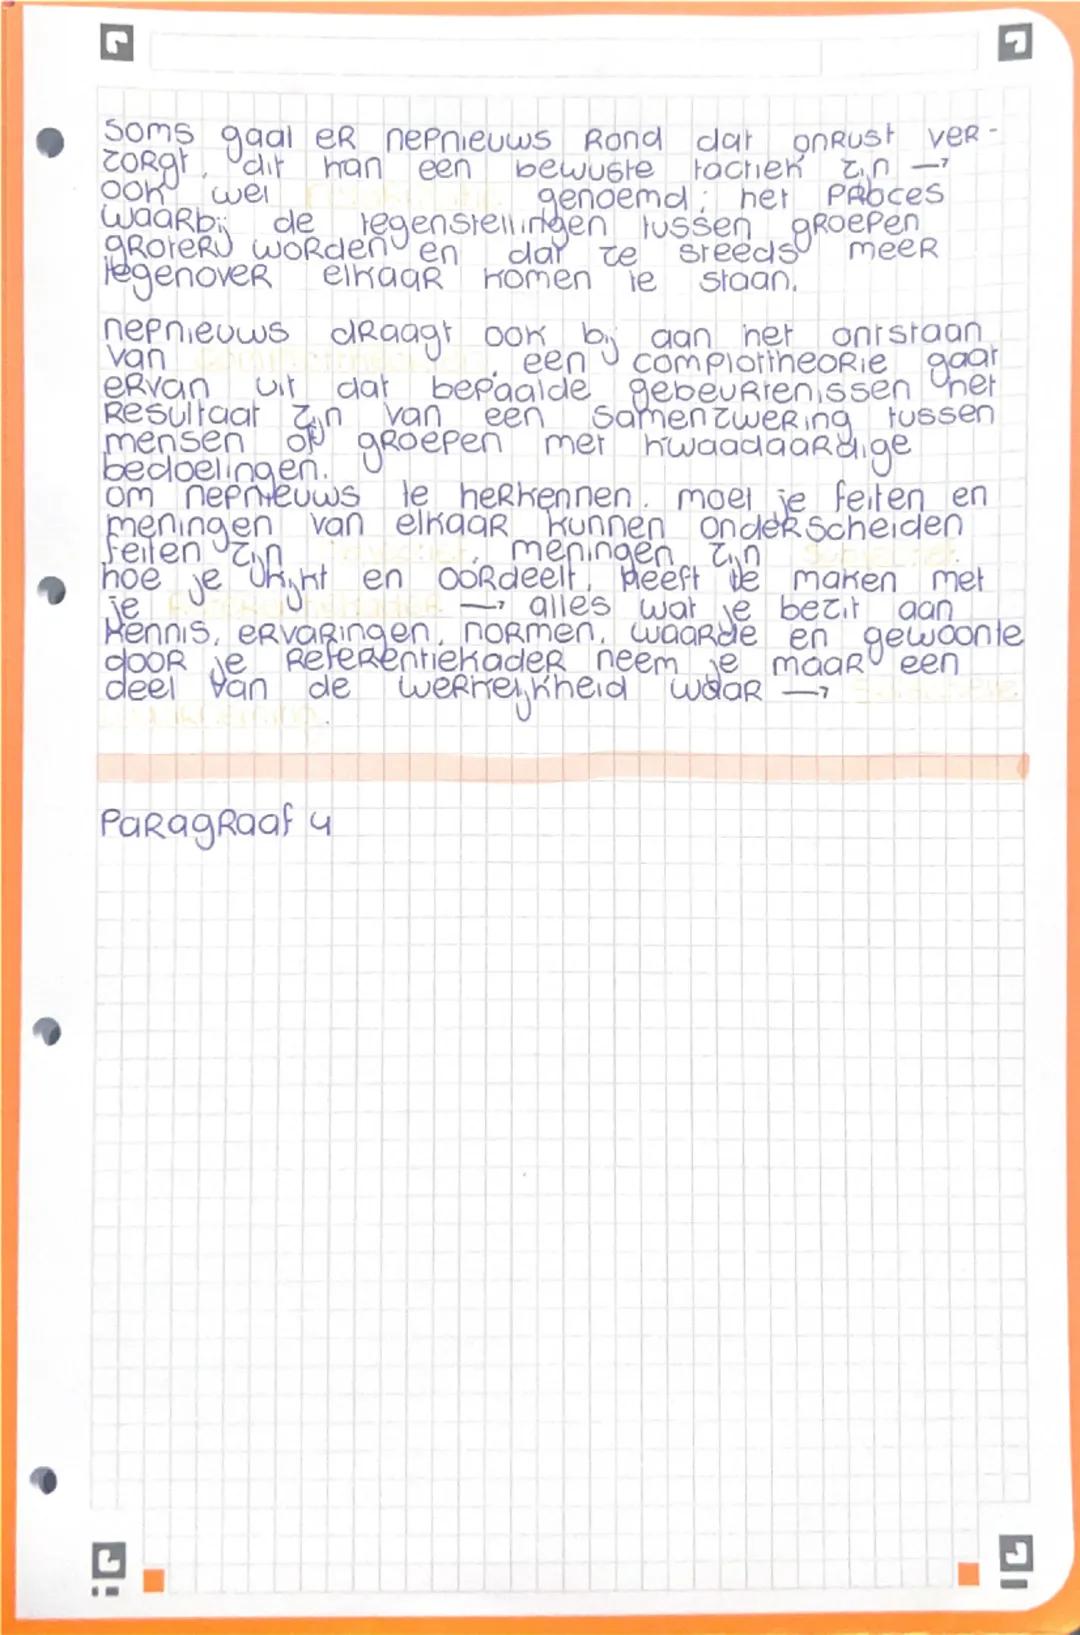 Soms gaat er nepnieuws rond dat onrust ver-
zorgt, dit kan een bewuste tactiek zijn →
ook wel genoemd; het proces
waarbij de tegenstellingen tussen groepen
groter worden en dat ze steeds meer
tegenover elkaar komen te staan.
nepnieuws draagt ook bij aan het ontstaan
van . een complottheorie gaat
ervan uit dat bepaalde gebeurtenissen het
Resultaat zijn van een samenzwering tussen
mensen of groepen met kwaadaardige
bedoelingen.
om nepnieuws te herkennen. moet je feiten en
meningen van elkaar kunnen onderscheiden
feiten zijn , meningen zijn subjectief.
hoe je kijkt en oordeelt, heeft te maken met
je → alles wat je bezit aan
kennis, ervaringen, normen, waarde en gewoonte
door je Referentiekader neem je maar een
deel van de werkelijkheid waar →
Paragraaf 4